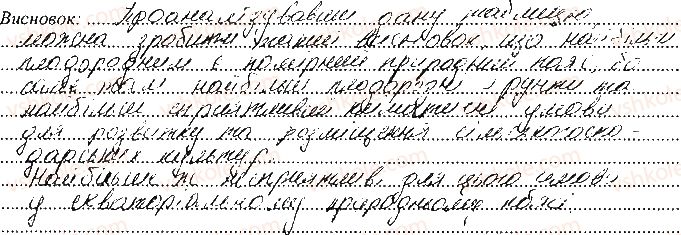 Висновок: Проаналізувавши дану таблицю,
можна зробити такий висновок, що найбільш
плодородним є помірний природний пояс, бо
саме там найбільш плодородні ґрунти та
найбільш сприятливі кліматичні умови
для розвитку та розміщення сільськогоспо-
дарських культур.
Найбільш же несприятливі для цього умови
у екваторіальному природному поясі.